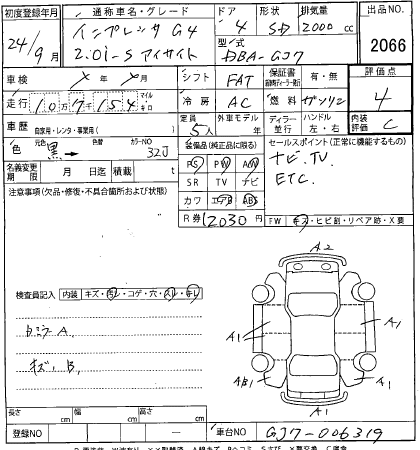 初度登録年月 通称車名・グレード ドア 形状 排気量 出品NO
24/9月 インプレッサ G4 4 SD 2000cc 2066
2.0i-S アイサイト 型式 DBA-GJ7
車検 X年 X月 シフト FAT 保証書 有・無 評価点
走行 10万7千154 マイル キロ 冷房 AC 燃料 ガソリン 4
車歴 自家用・レンタ・事業用( ) 定員 5人 外車モデル 年 ディーラー 並行 ハンドル 左・右 内装評価 C
色 元色 黒→ カラーNO 32J 装備品(純正品に限る) セールスポイント(正常に機能するもの)
名義変更期限 月 日迄 積載 t PS PW AW ナビ, TV,
注意事項(欠品・修復・不具合箇所および状態) SR TV ナビ ETC,
カワ エアB ABS
R券 ¥2030円 FW キズ・ヒビ割・リペア跡・X要
A2
検査員記入 内装 キズ・汚レ・コゲ・穴・スレ・キレ
カミラA A1 A1
キズ, B, AB1 A1
A1
長さ cm 幅 cm 高さ cm
登録NO — 車台NO GJ7-006319